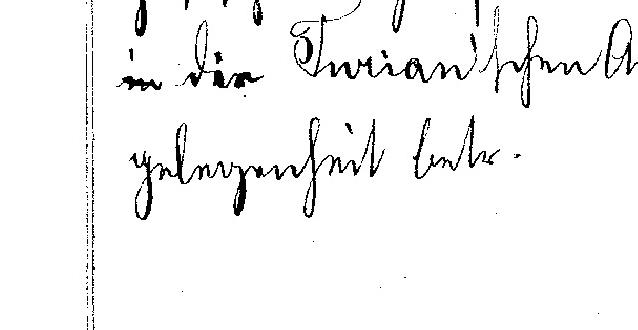 in der Turian'schen A
gelegenheit betr.